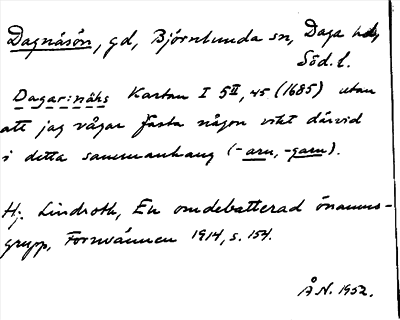 Dagnäsön, gd, Björnlunda sn, Daga hd,
Söd. l.
Dagar:näks Kartan I 5II, 45 (1685) utan
att jag vågar fästa någon vikt därvid
i detta sammanhang (-arn, -garn).
Hj. Lindroth, En omdebatterad önamns-
grupp, Fornvännen 1914, s. 154.
Å.N. 1952.